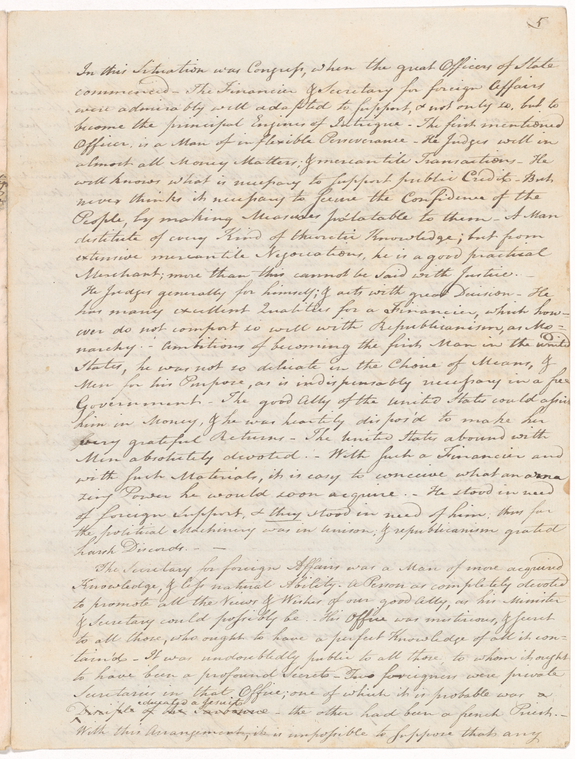 5
In this Situation was Congress, when the great Officers of State
commenced - The Financier & Secretary for foreign Affairs
were admirably well adapted to support, & not only so, but to
become the principal Engines of Intrigue - The first mentioned
Officer, is a Man of inflexible Perseverance - He Judges well in
almost all Money Matters; & mercantile Transactions - He
well knows what is necessary to support public Credit - But
never thinks it necessary to secure the Confidence of the
People, by making Measures palatable to them - A Man
destitute of every Kind of theoretic Knowledge; but from
extensive mercantile Negociations, he is a good practical
Merchant; more than this cannot be said with Justice. -
He Judges generally for himself; & acts with great Decision - He
has many excellent Qualities for a Financier, which how-
ever do not comport so well with Republicanism, as Mo-
narchy - Ambitious of becoming the first Man in the United
States, he was not so delicate in the Choice of Means, &
Men for his Purpose, as is indispensably necessary in a free
Government - The good Ally of the united States could assist
him in Money, & he was heartily dispos'd to make her
very grateful Returns - The united States abound with
Men absolutely devoted - With such a Financier and
with such Materials, it is easy to conceive what an ama
zing Power he would soon acquire - He stood in need
of foreign Support, & they stood in need of him. thus far
the political Machinery was in unison, & republicanism grated
harsh Discords. -
The Secretary for foreign Affairs was a Man of more acquired
Knowledge, & less natural Ability - A Person as completely devoted
to promote all the Views & Wishes of our good Ally, as his Minister
& Secretary could possibly be. - His Office was misterious, & secret
to all those, who ought to have a perfect Knowledge of all it con-
tain'd - It was undoubtedly public to all those to whom it ought
to have been a profound Secret - Two foreigners were private
Secretaries in that Office; one of which it is probable was a
Disciple of - the other had been a french Priest. -
With this Arrangement, it is impossible to suppose that any